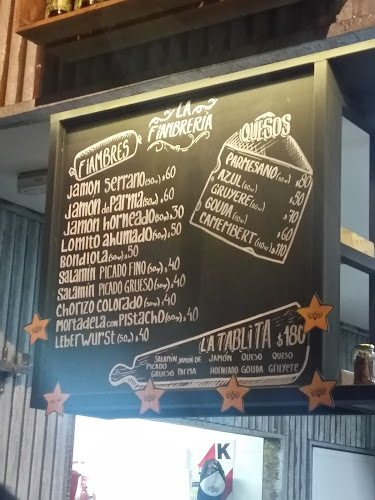 LA
FIAMBRERÍA
FIAMBRES
JAMON SERRANO (50gr) $60
JAMON de PARMA (50gr) $60
JAMON HORNEADO (50gr) $30
LOMITO AHUMADO (50gr) $50
BONDIOLA (50gr) $50
SALAMIN PICADO FINO (50gr) $40
SALAMIN PICADO GRUESO (50gr) $40
CHORIZO COLORADO (50gr) $40
MORTADELA CON PISTACHO (50gr) $40
LEBERWURST (50gr) $40
QUESOS
PARMESANO (50gr) $80
AZUL (50gr) $50
GRUYERE (50gr) $70
GOUDA (50gr) $60
CAMEMBERT (110gr) $110
LA TABLITA $180
SALAMIN JAMON DE JAMON QUESO QUESO
PICADO PARMA HORNEADO GOUDA GRUYERE
GRUESO
K